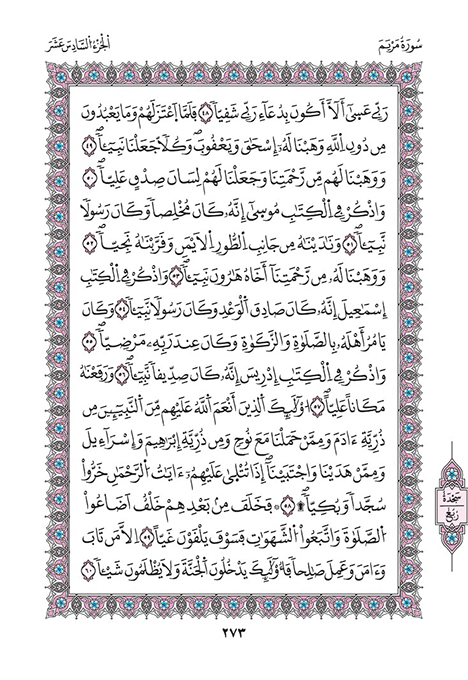 سُورَةُ مَرْيَمَ
الجُزْءُ السَّادِسَ عَشَرَ
رَبِّي عَسَىٰٓ أَلَّآ أَكُونَ بِدُعَآءِ رَبِّي شَقِيّاًۖ ٤٨ فَلَمَّا اَعْتَزَلَهُمْ وَمَا يَعْبُدُونَ
مِن دُونِ اِللَّهِ وَهَبْنَا لَهُۥٓ إِسْحَٰقَ وَيَعْقُوبَۖ وَكُلّاً جَعَلْنَا نَبِيٓـٔاًۖ ٤٩
وَوَهَبْنَا لَهُم مِّن رَّحْمَتِنَا وَجَعَلْنَا لَهُمْ لِسَانَ صِدْقٍ عَلِيّاًۖ ٥٠
وَاذْكُرْ فِي اِلْكِتَٰبِ مُوسَىٰٓ إِنَّهُۥ كَانَ مُخْلِصاً وَكَانَ رَسُولاً
نَّبِيٓـٔاًۖ ٥١ وَنَٰدَيْنَٰهُ مِن جَانِبِ اِلطُّورِ اِلَايْمَنِ وَقَرَّبْنَٰهُ نَجِيّاًۖ ٥٢
وَوَهَبْنَا لَهُۥ مِن رَّحْمَتِنَآ أَخَاهُ هَٰرُونَ نَبِيٓـٔاًۖ ٥٣ وَاذْكُرْ فِي اِلْكِتَٰبِ
إِسْمَٰعِيلَ إِنَّهُۥ كَانَ صَادِقَ اَلْوَعْدِ وَكَانَ رَسُولاً نَّبِيٓـٔاًۖ ٥٤ وَكَانَ
يَامُرُ أَهْلَهُۥ بِالصَّلَوٰةِ وَالزَّكَوٰةِ وَكَانَ عِندَ رَبِّهِۦ مَرْضِيّاًۖ ٥٥
وَاذْكُرْ فِي اِلْكِتَٰبِ إِدْرِيسَ إِنَّهُۥ كَانَ صِدِّيقاً نَّبِيٓـٔاًۖ ٥٦ وَرَفَعْنَٰهُ
مَكَاناً عَلِيّاًۖ ٥٧ اُوْلَٰٓئِكَ اَلذِينَ أَنْعَمَ اَللَّهُ عَلَيْهِم مِّنَ اَلنَّبِيٓـِٕينَ مِن
ذُرِّيَّةِ ءَادَمَ وَمِمَّنْ حَمَلْنَا مَعَ نُوحٍ وَمِن ذُرِّيَّةِ إِبْرَٰهِيمَ وَإِسْرَآءِيلَ
وَمِمَّنْ هَدَيْنَا وَاجْتَبَيْنَآۖ إِذَا تُتْلَىٰ عَلَيْهِمُۥٓ ءَايَٰتُ اُلرَّحْمَٰنِ خَرُّواْ
سُجَّداً وَبُكِيّاًۖ ٥٨ فَخَلَفَ مِنۢ بَعْدِهِمْ خَلْفٌ اَضَاعُواْ
اُلصَّلَوٰةَ وَاتَّبَعُواْ اُلشَّهَوَٰتِ فَسَوْفَ يَلْقَوْنَ غَيّاً ٥٩ اِلَّا مَن تَابَ
وَءَامَنَ وَعَمِلَ صَٰلِحاً فَأُوْلَٰٓئِكَ يَدْخُلُونَ اَلْجَنَّةَ وَلَا يُظْلَمُونَ شَيْـٔاًۖ ٦٠
سَجْدَة
رُبُع
٢٧٣